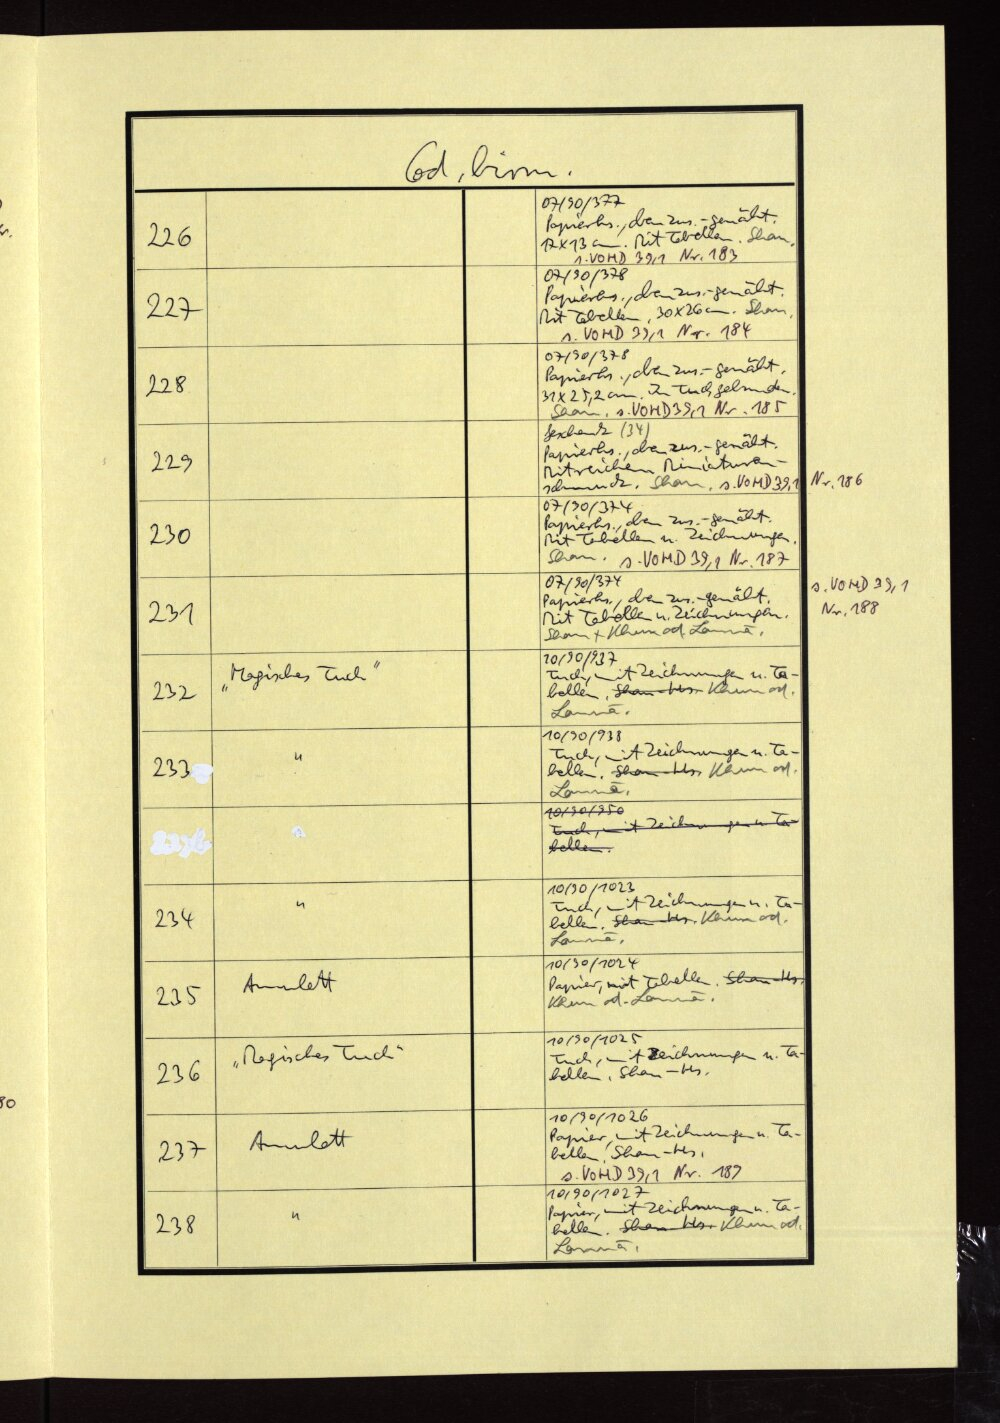 Cod. birm.
226
07/90/377
Papierhs., oben zus.-genäht.
17x13 cm. Mit Tabellen. Shan.
s. VOHD 39,1 Nr. 183
227
07/90/378
Papierhs., oben zus.-genäht.
Mit Tabellen, 30x26 cm. Shan.
s. VOHD 39,1 Nr. 184
228
07/90/378
Papierhs., oben zus.-genäht.
31x25,2 cm. In Tuch gebunden.
Shan. s. VOHD 39,1 Nr. 185
229
Geschenk (34)
Papierhs., oben zus.-genäht.
Mit reichem Miniaturen-
schmuck. Shan. s. VOHD 39,1 Nr. 186
230
07/90/374
Papierhs., oben zus.-genäht.
Mit Tabellen u. Zeichnungen.
Shan. s. VOHD 39,1 Nr. 187
231
07/90/374
Papierhs., oben zus.-genäht.
Mit Tabellen u. Zeichnungen.
Shan + Khün od. Lannā.
s. VOHD 39,1
Nr. 188
232 „Magisches Tuch“
10/90/937
Tuch, mit Zeichnungen u. Ta-
bellen. Shan-Hs. Khün od.
Lannā.
233 "
10/90/938
Tuch, mit Zeichnungen u. Ta-
bellen. Shan-Hs. Khün od.
Lannā.
"
10/90/950
Tuch, mit Zeichnungen u. Ta-
bellen.
234 "
10/90/1023
Tuch, mit Zeichnungen u. Ta-
bellen. Shan-Hs. Khün od.
Lannā.
235 Amulett
10/90/1024
Papier, mit Tabellen. Shan-Hs.
Khün od. Lannā.
236 „Magisches Tuch“
10/90/1025
Tuch, mit Zeichnungen u. Ta-
bellen. Shan-Hs.
237 Amulett
10/90/1026
Papier, mit Zeichnungen u. Ta-
bellen. Shan-Hs.
s. VOHD 39,1 Nr. 189
238 "
10/90/1027
Papier, mit Zeichnungen u. Ta-
bellen. Shan-Hs. Khün od.
Lannā.
80